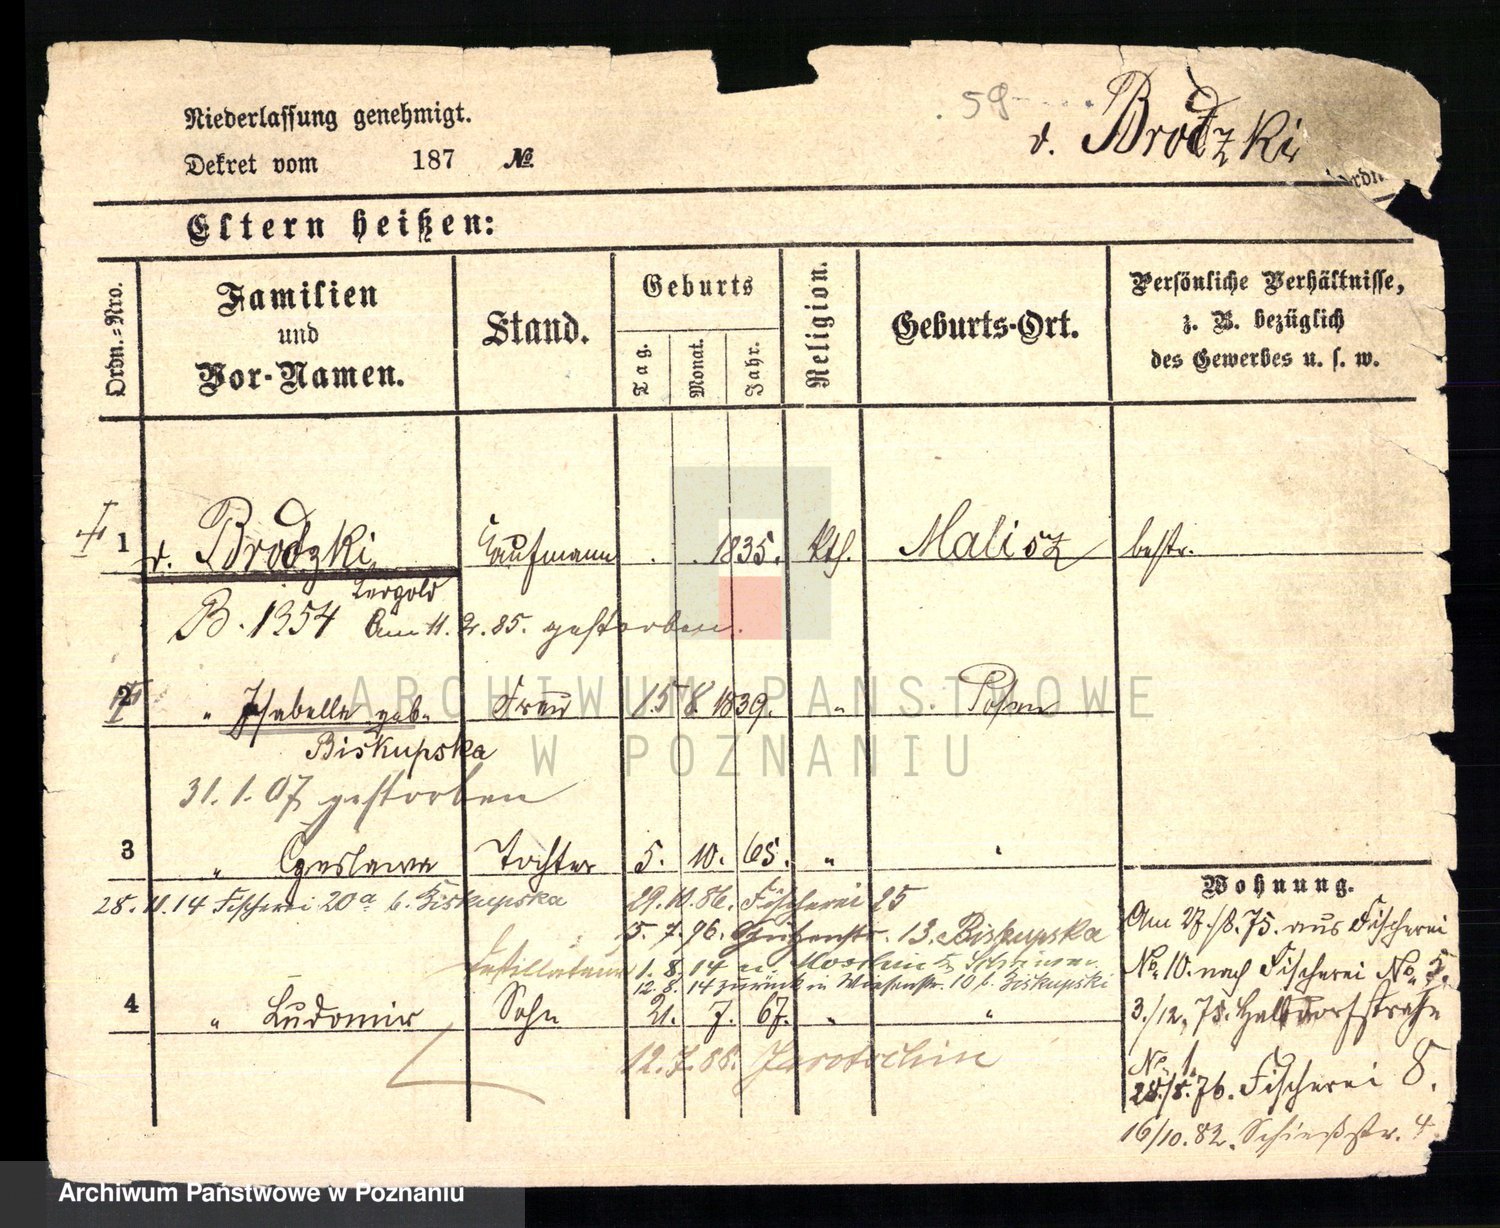 59
v. Brodzki
Niederlassung genehmigt.
Dekret vom 187 №.
Ordn
Eltern heißen:
Ordn.-Nro.
Familien
und
Vor-Namen.
Stand.
Geburts
Tag.
Monat.
Jahr.
Religion.
Geburts-Ort.
Persönliche Verhältnisse,
z. B. bezüglich
des Gewerbes u. s. w.
1 v. Brodzki Kaufmann . . 1835. Kth. Malisz bestr.
B. 1354 Am 11. 2. 85. gestorben.
2 " Isabella geb. Frau 15 8 1839. " Posen
Biskupska
31. 1. 07 gestorben
3 " Czeslawa Tochter 5. 10. 65. " "
28. 11. 14 Fischerei 20a b. Biskupska
29. 10. 86. Fischerei 25
5. 7. 96. 13. Biskupska
1. 8. 14 n.
12. 8. 14 zurück n Wiesenstr. 10 b. Biskupski
4 " Ludomir Sohn 21. 7. 67. " "
12. 7. 88. Jarotschin
Wohnung.
Am 27./8. 75. aus Fischerei
No. 10. nach Fischerei No. 5.
3./12. 75. Halbdorfstraße
No. 1.
28./8. 76. Fischerei 8.
16/10. 82. Schießstr. 4.
ARCHIWUM PAŃSTWOWE
W POZNANIU
Archiwum Państwowe w Poznaniu